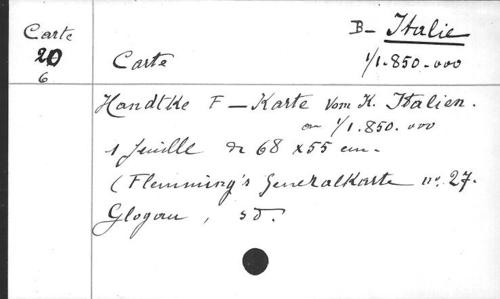 Carte
20
6
B- Italie
Carte
1/1.850.000
Handtke F - Karte vom K. Italien.
au 1/1.850.000
1 feuille de 68 x 55 cm.
(Flemming's Generalkarte nr. 27.
Glogau, sd.